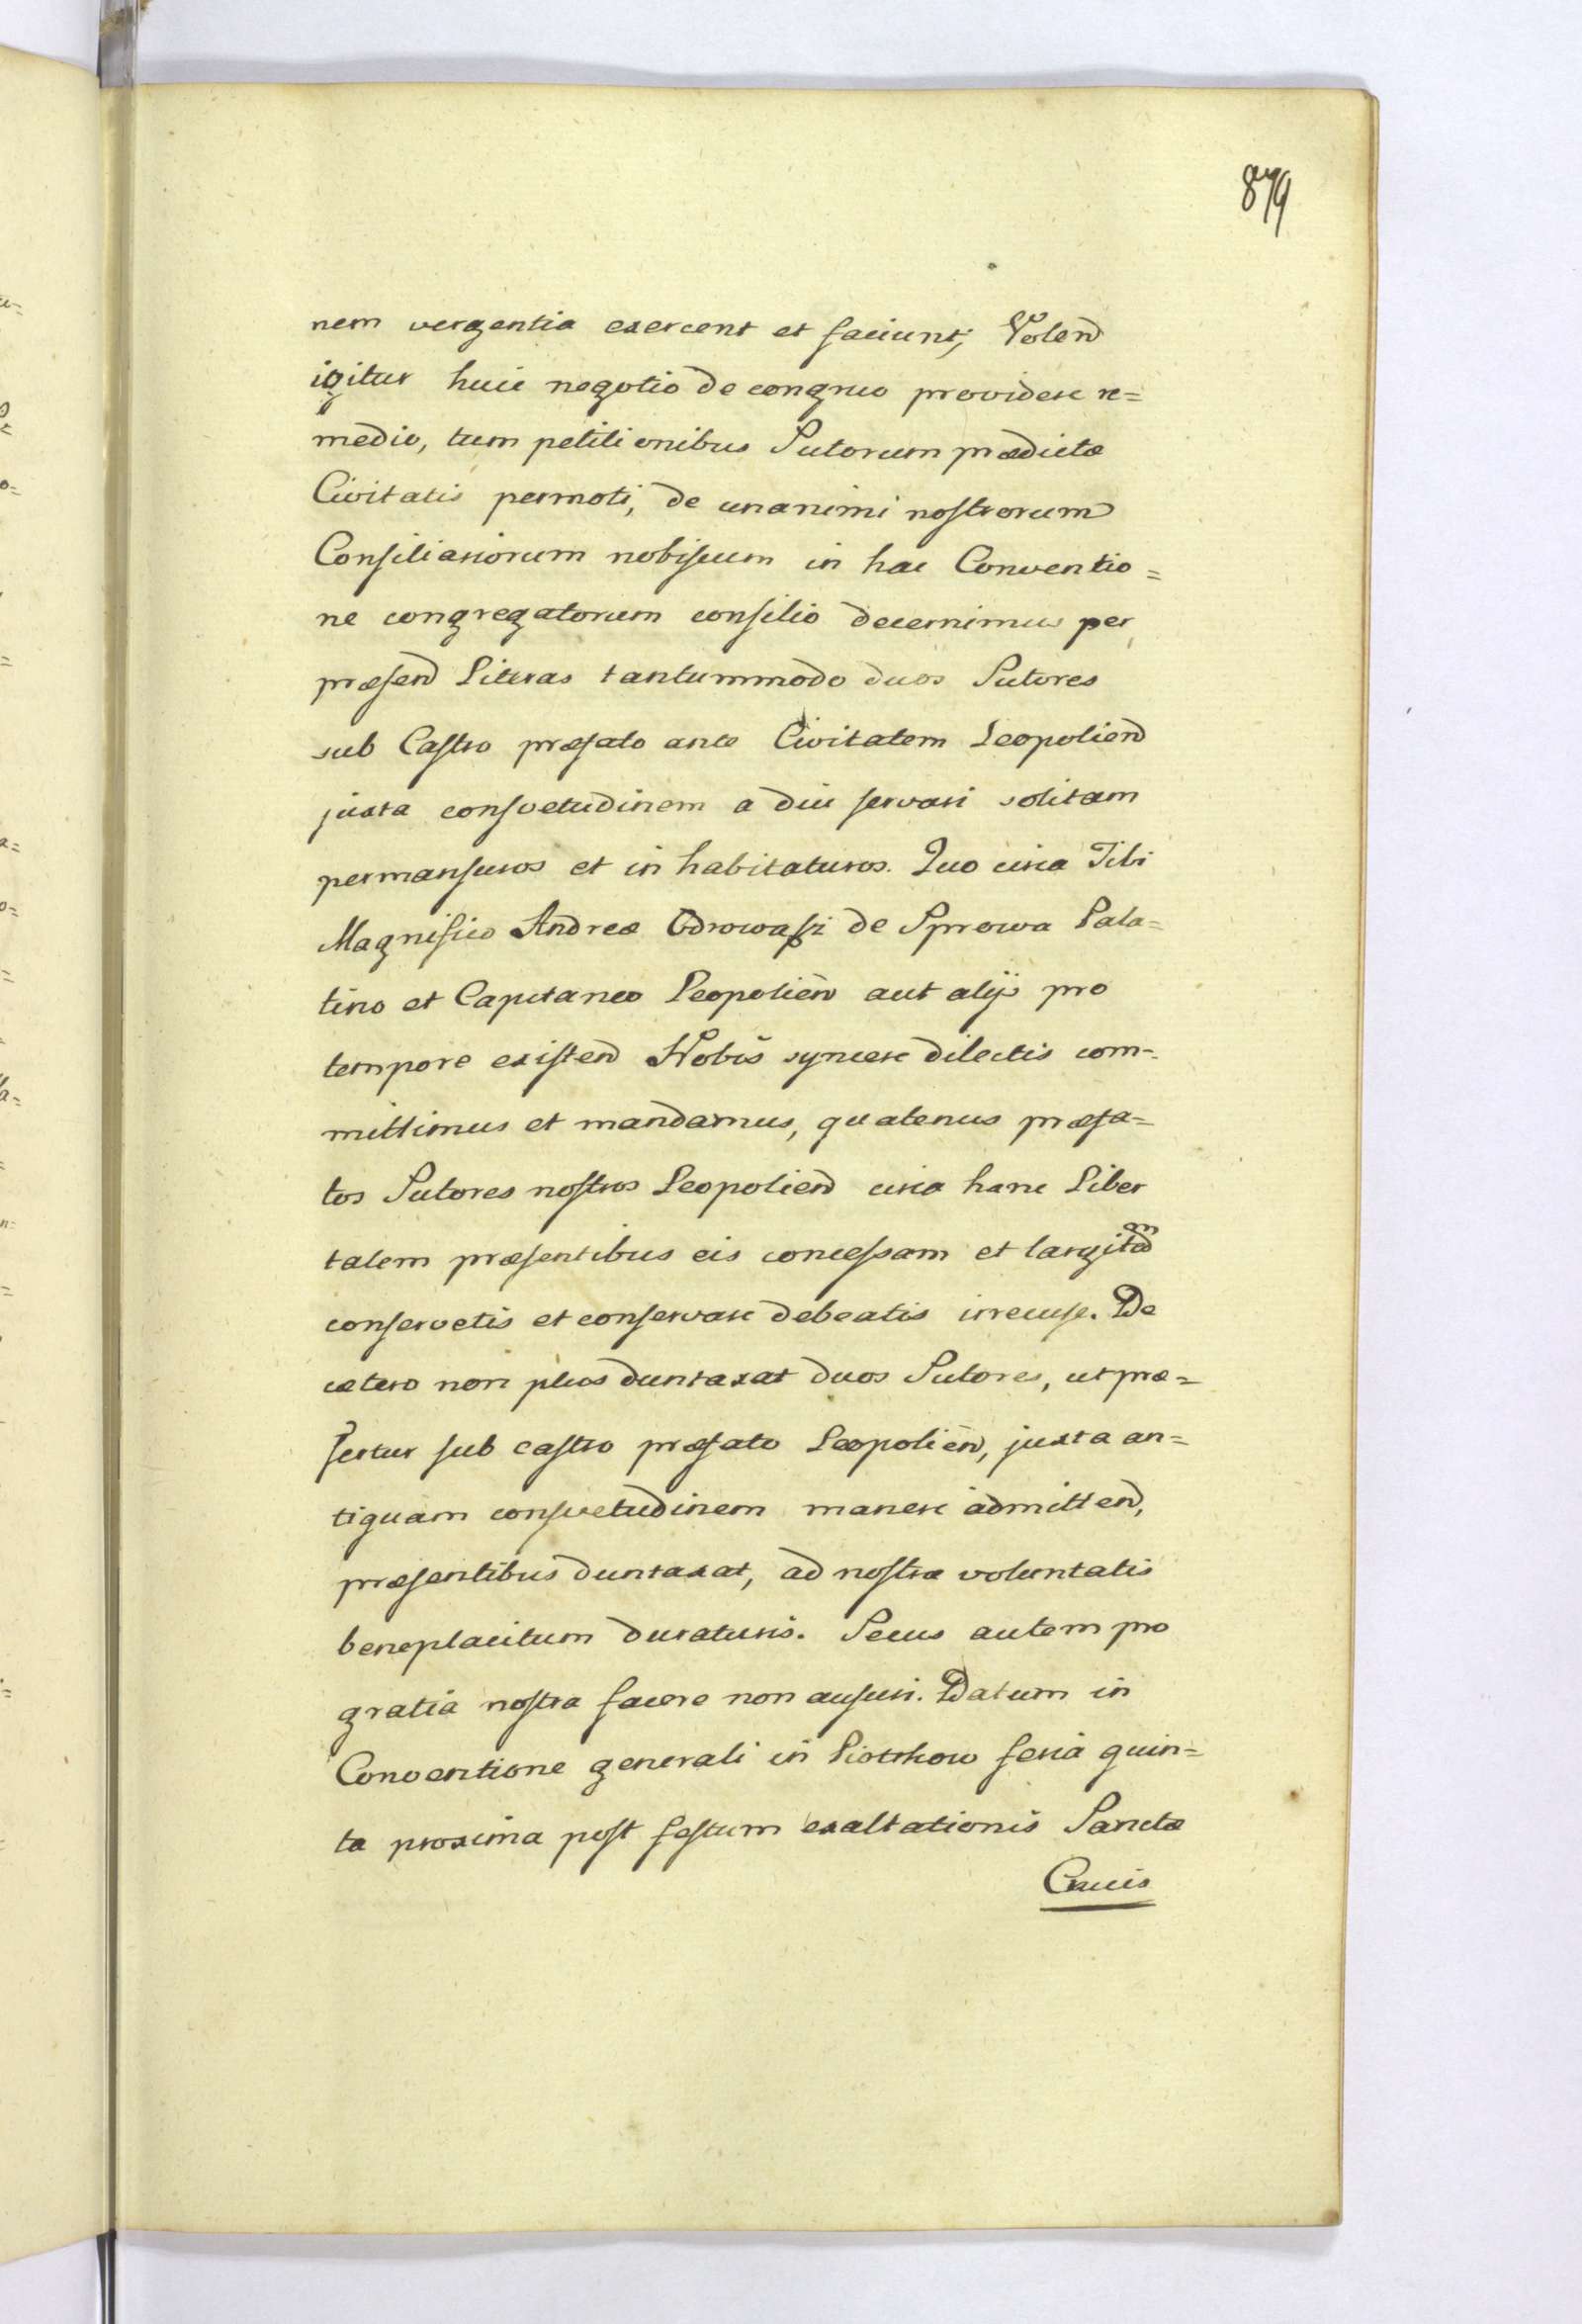 879
nem vergentia exercent et faciunt; Volend
igitur huic negotio de congruo providere re=
medio, tum petitionibus Sutorum prædictæ
Civitatis permoti, de unanimi nostrorum
Consiliariorum nobiscum in hac Conventio=
ne congregatorum consilio decernimus per
præsend Literas tantummodo duos Sutores
sub Castro præfato ante Civitatem Leopoliend
juxta consvetudinem a diu servari solitam
permansuros et in habitaturos. Quo circa Tibi
Magnifico Andreæ Odrowaſz de Sprowa Pala=
tino et Capitaneo Leopolien aut alijs pro
tempore existend Nobis syncere dilectis com=
mittimus et mandamus, quatenus præfa=
tos Sutores nostros Leopoliend circa hanc Liber
tatem præsentibus eis concessam et largitam
conservetis et conservare debeatis irrecuse. De
cætero non plus duntaxat duos Sutores, ut præ=
fertur sub castro præfato Leopolien, juxta an=
tiquam consvetudinem manere admittend,
præsentibus duntaxat, ad nostræ voluntatis
beneplacitum duraturis. Secus autem pro
gratia nostra facere non ausuri. Datum in
Conventione generali in Piotrkow feria quin=
ta proxima post festum exaltationis Sanctæ
Crucis